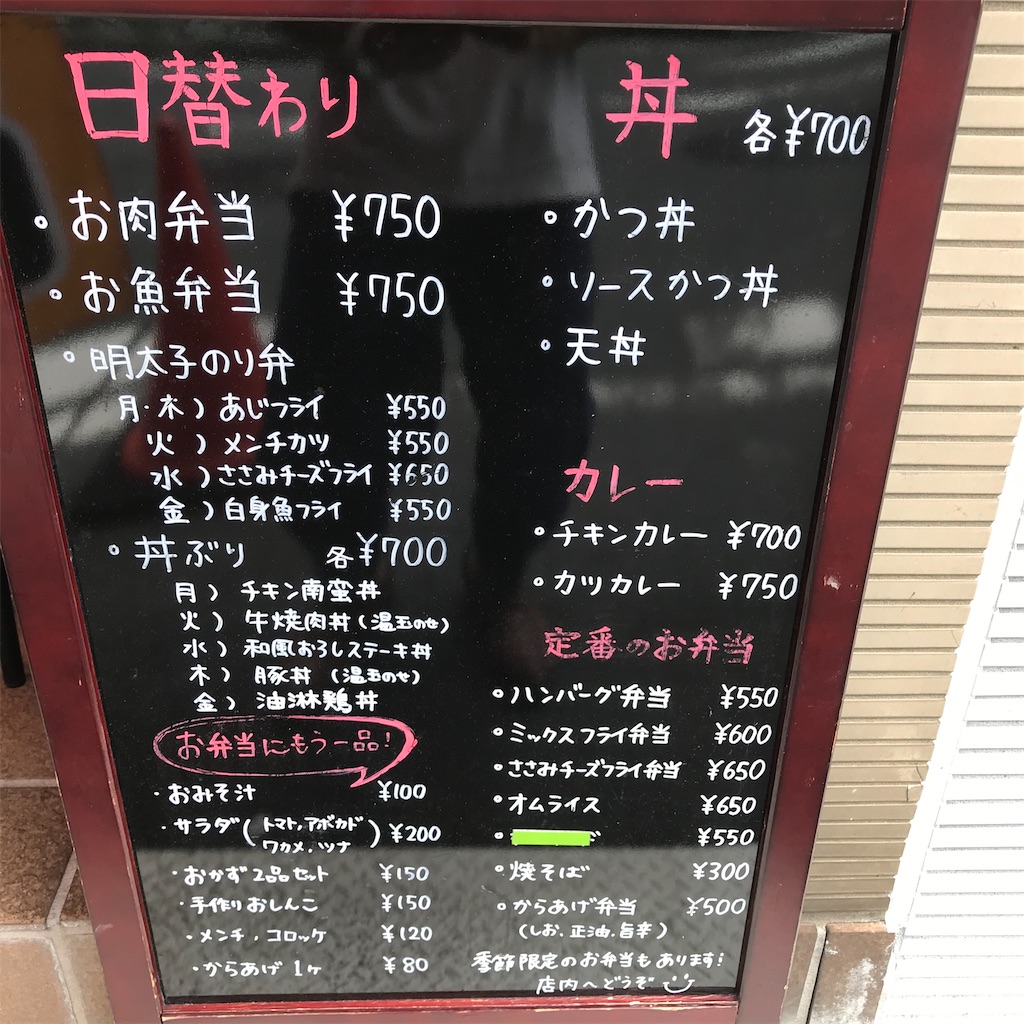 日替わり
・お肉弁当 ¥750
・お魚弁当 ¥750
・明太子のり弁
月・木）あじフライ ¥550
火）メンチカツ ¥550
水）ささみチーズフライ ¥650
金）白身魚フライ ¥550
・丼ぶり 各¥700
月）チキン南蛮丼
火）牛焼肉丼（温玉のせ）
水）和風おろしステーキ丼
木）豚丼（温玉のせ）
金）油淋鶏丼
お弁当にもう一品!
・おみそ汁 ¥100
・サラダ(トマト,アボカド
ワカメ,ツナ) ¥200
・おかず2品セット ¥150
・手作りおしんこ ¥150
・メンチ,コロッケ ¥120
・からあげ1ヶ ¥80
丼 各¥700
・かつ丼
・ソースかつ丼
・天丼
カレー
・チキンカレー ¥700
・カツカレー ¥750
定番のお弁当
・ハンバーグ弁当 ¥550
・ミックスフライ弁当 ¥600
・ささみチーズフライ弁当 ¥650
・オムライス ¥650
¥550
・焼そば ¥300
・からあげ弁当 ¥500
（しお.正油.旨辛）
季節限定のお弁当もあります!
店内へどうぞ